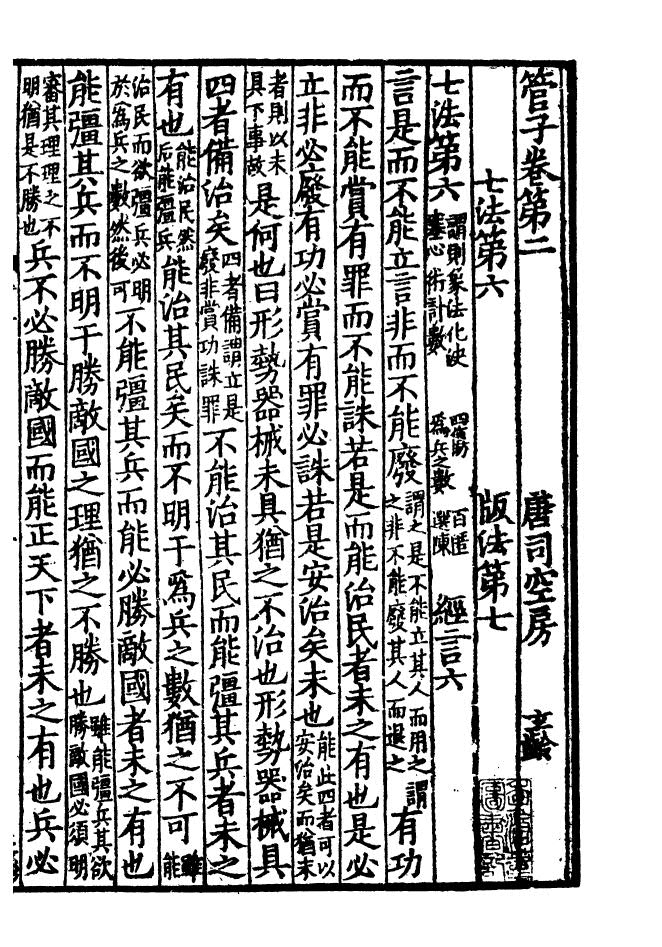 管子卷第二 唐司空房 玄齡
七法第六 版法第七
七法第六 謂則象法化決塞心術計數 四傷 百匿 爲兵之數 選陳 經言六
言是而不能立言非而不能廢 謂之是不能立其人而用之謂之非不能廢其人而退之 有功
而不能賞有罪而不能誅若是而能治民者未之有也是必
立非必廢有功必賞有罪必誅若是安治矣未也 能此四者可以安治矣而猶未
者則以未具下事故 是何也曰形勢器械未具猶之不治也形勢器械具
四者備治矣 四者備謂立是廢非賞功誅罪 不能治其民而能彊其兵者未之
有也 能治民然后能彊兵 能治其民矣而不明于爲兵之數猶之不可 雖能
治民而欲彊兵必明於爲兵之數然後可 不能彊其兵而能必勝敵國者未之有也
能彊其兵而不明于勝敵國之理猶之不勝也 雖能彊兵其欲勝敵國必須明
審其理理之不明猶是不勝也 兵不必勝敵國而能正天下者未之有也兵必